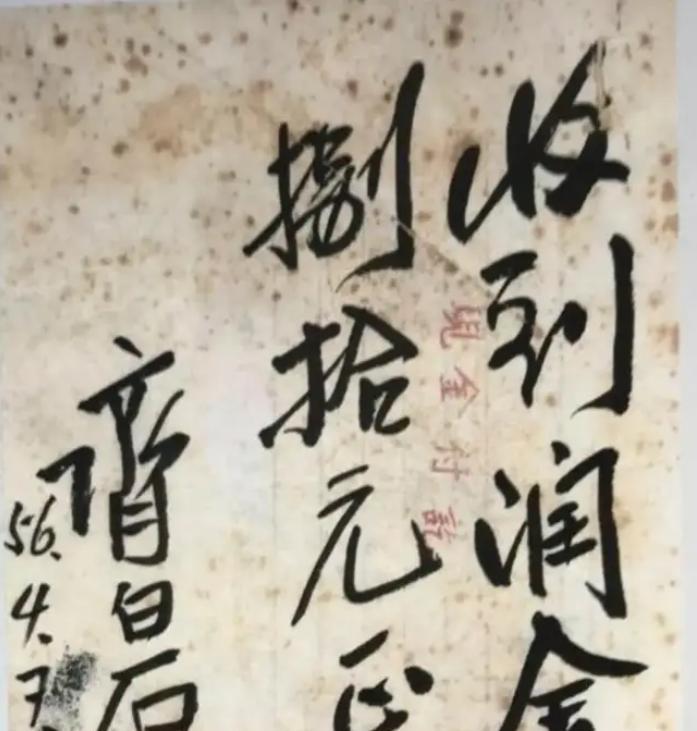 收到润金
现金付讫
捌拾元正
齊白石
56.4.7